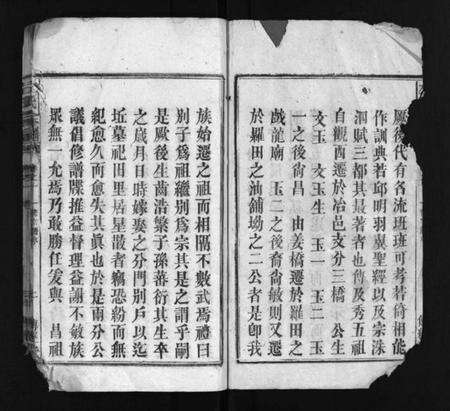 厥後代有各流班班可考若倚相能
作訓典若邱明羽翼聖釋以及宗洙
泗賦三都其最著者也雋及秀五祖
自觀西遷於冶邑支分三橋 公生
支玉 文玉生 玉一 玉二 玉
一之後尙昌 由姜橋遷於羅田之
戲龍廟 玉二之後裔尙敏則又遷
於羅田之油鋪坳之二公者是卽我
族始遷之祖而相隔不數武焉禮曰
別子爲祖繼別爲宗其是之謂乎嗣
是厥後生齒浩繁子孫蕃衍其生卒
之歲月日時嫁娶之分門別戶以迄
坵墓祀田里居星散者竊恐紛而無
紀愈久而愈失其眞也於是兩分公
議倡修譜牒推益督理益謝不敏族
眾無一允焉乃敢勝任爰與 昌祖